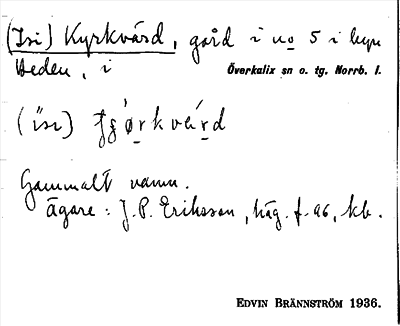 (Isi) Kyrkvärd, gård i no 5 i byn
Heden, i Överkalix sn o. tg. Norrb. l.
(ísı)
Gammalt namn.
Ägare: J.P. Eriksson, häg. f. 96, kb.
EDVIN BRÄNNSTRÖM 1936.